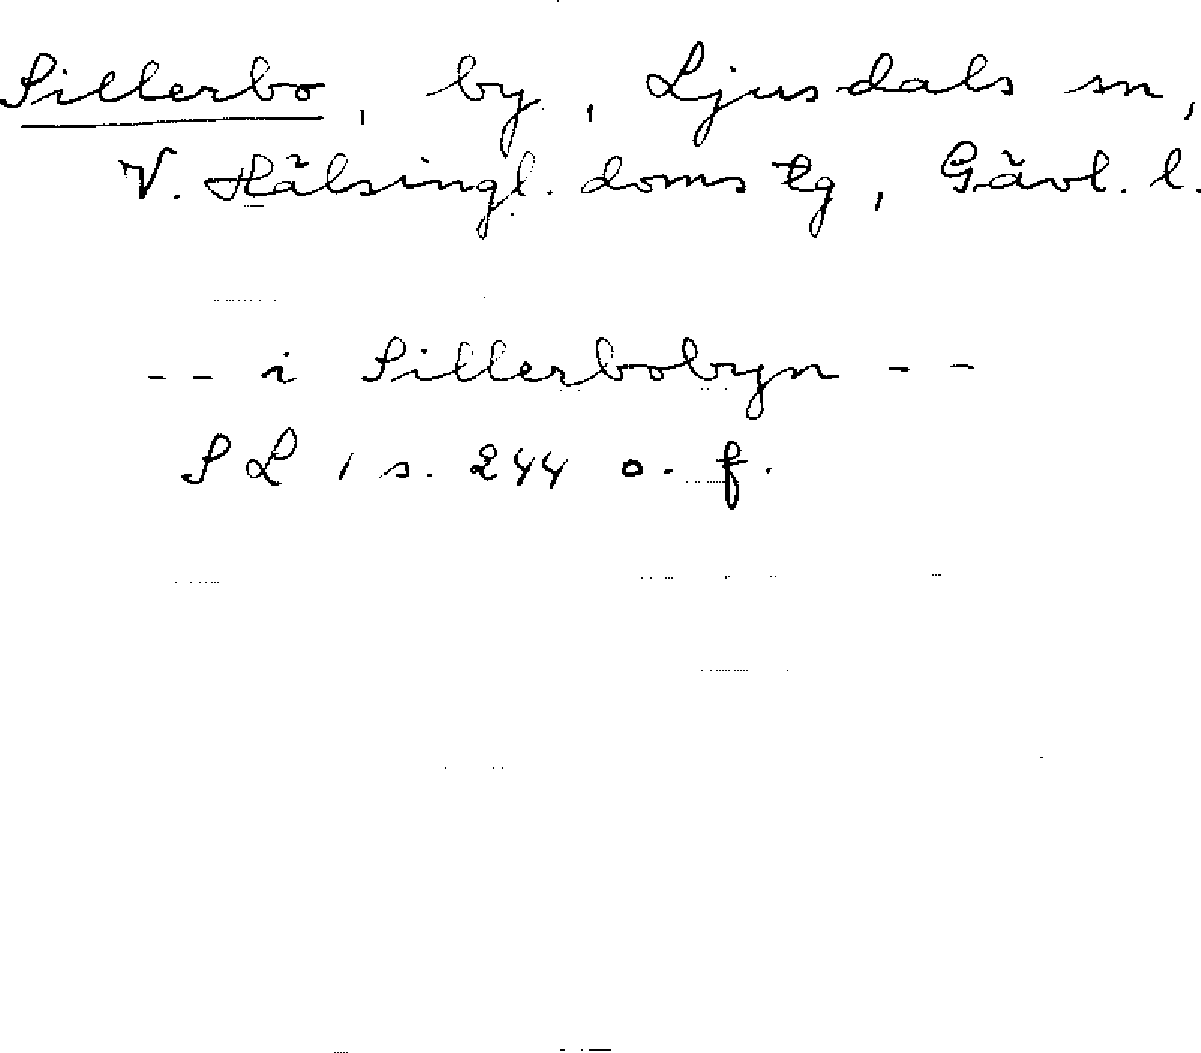 Sillerbo, by, Ljusdals sn,
V. Hälsingl. doms tg, Gävl. l.
-- i Sillerbobyn --
SL 1 s. 244 o. f.